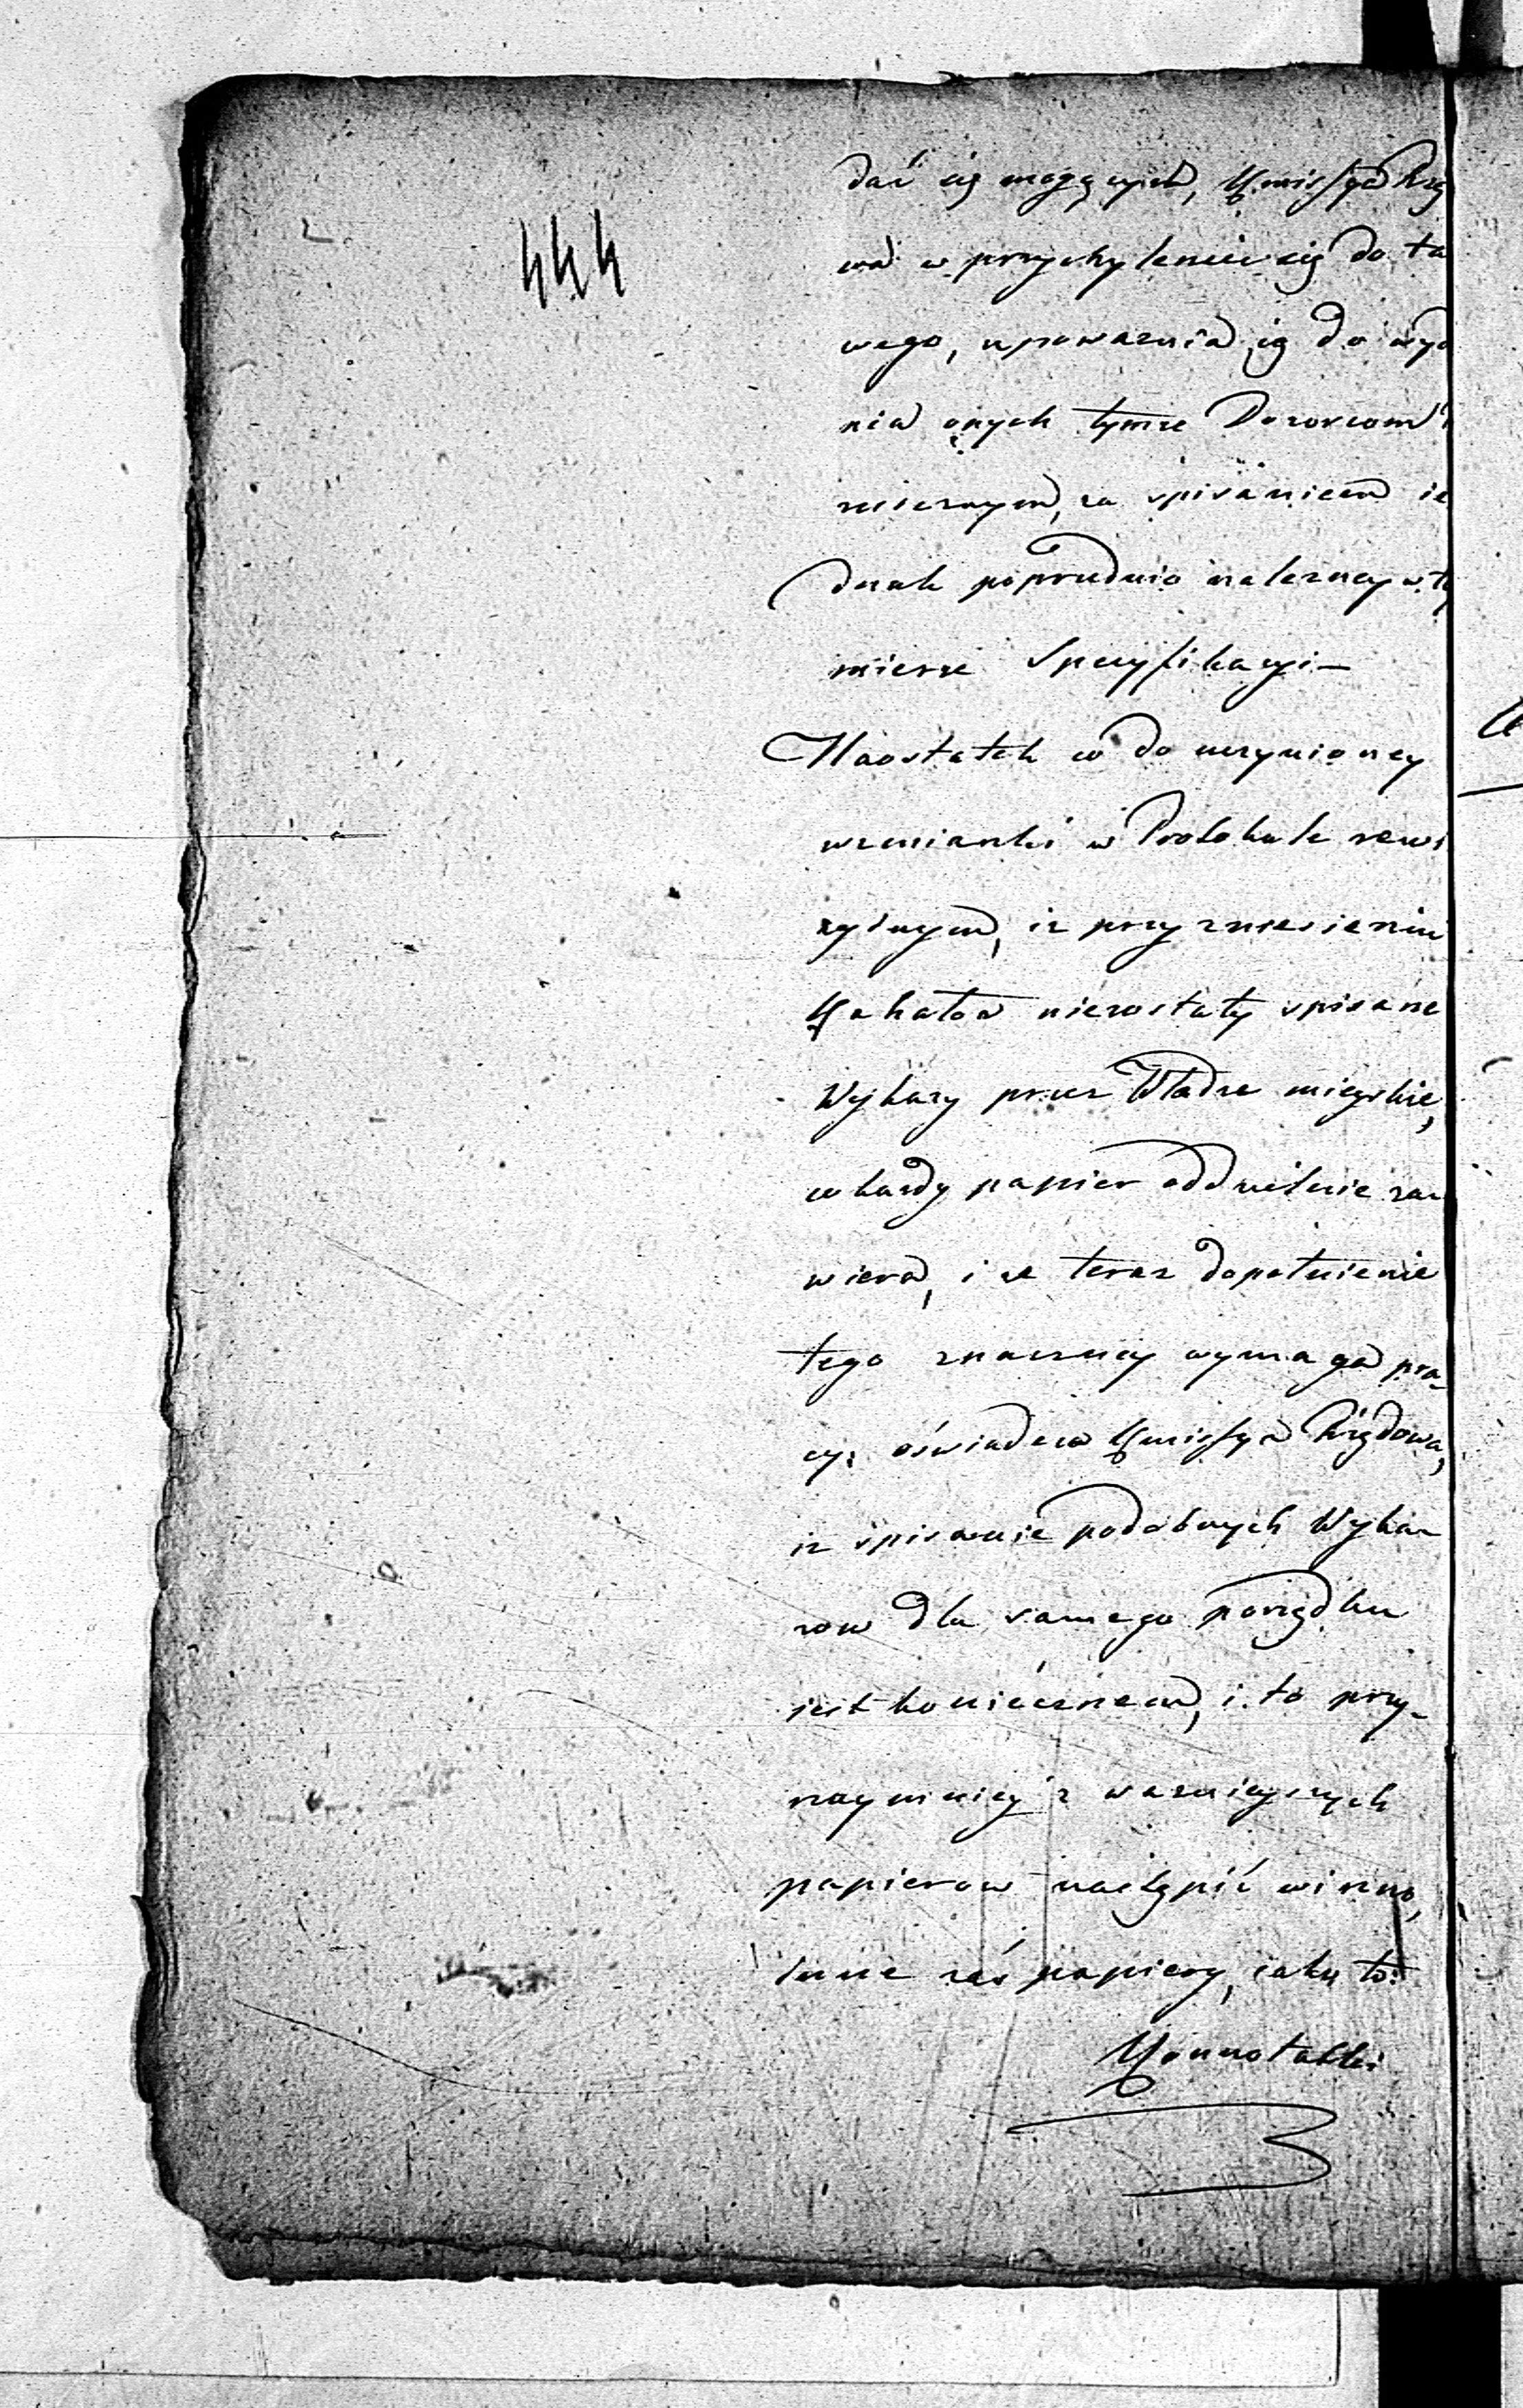 444
dać się mogących, Kmissya Rzą
wa w przychyleniu się do ta
wego, upoważnia ją do wyd
nia onych tymże Dozorcom
mieznym, za spisaniem ie
dnak poprzednio należney w tę
mierze Specyfikacyi —
Naostatek co do uczynioney
wzmianki w Protokule rewi
zyinym, iż przy zniesieniu
Kahałów niezostały spisane
Wykazy przez Władze mieyskie,
co każdy papier oddzielnie za
wiera, i że teraz dopełnienie
tego znaczney wymaga pra-
cy, oświadcza Kmissya Rządowa,
iż spisanie podobnych Wyka-
zow dla samego porządku
jest koniecznem, i to przy-
naymniey z ważnieyszych
papierow nastąpić winno,
inne zaś papiery, iako to:
Konnotatki